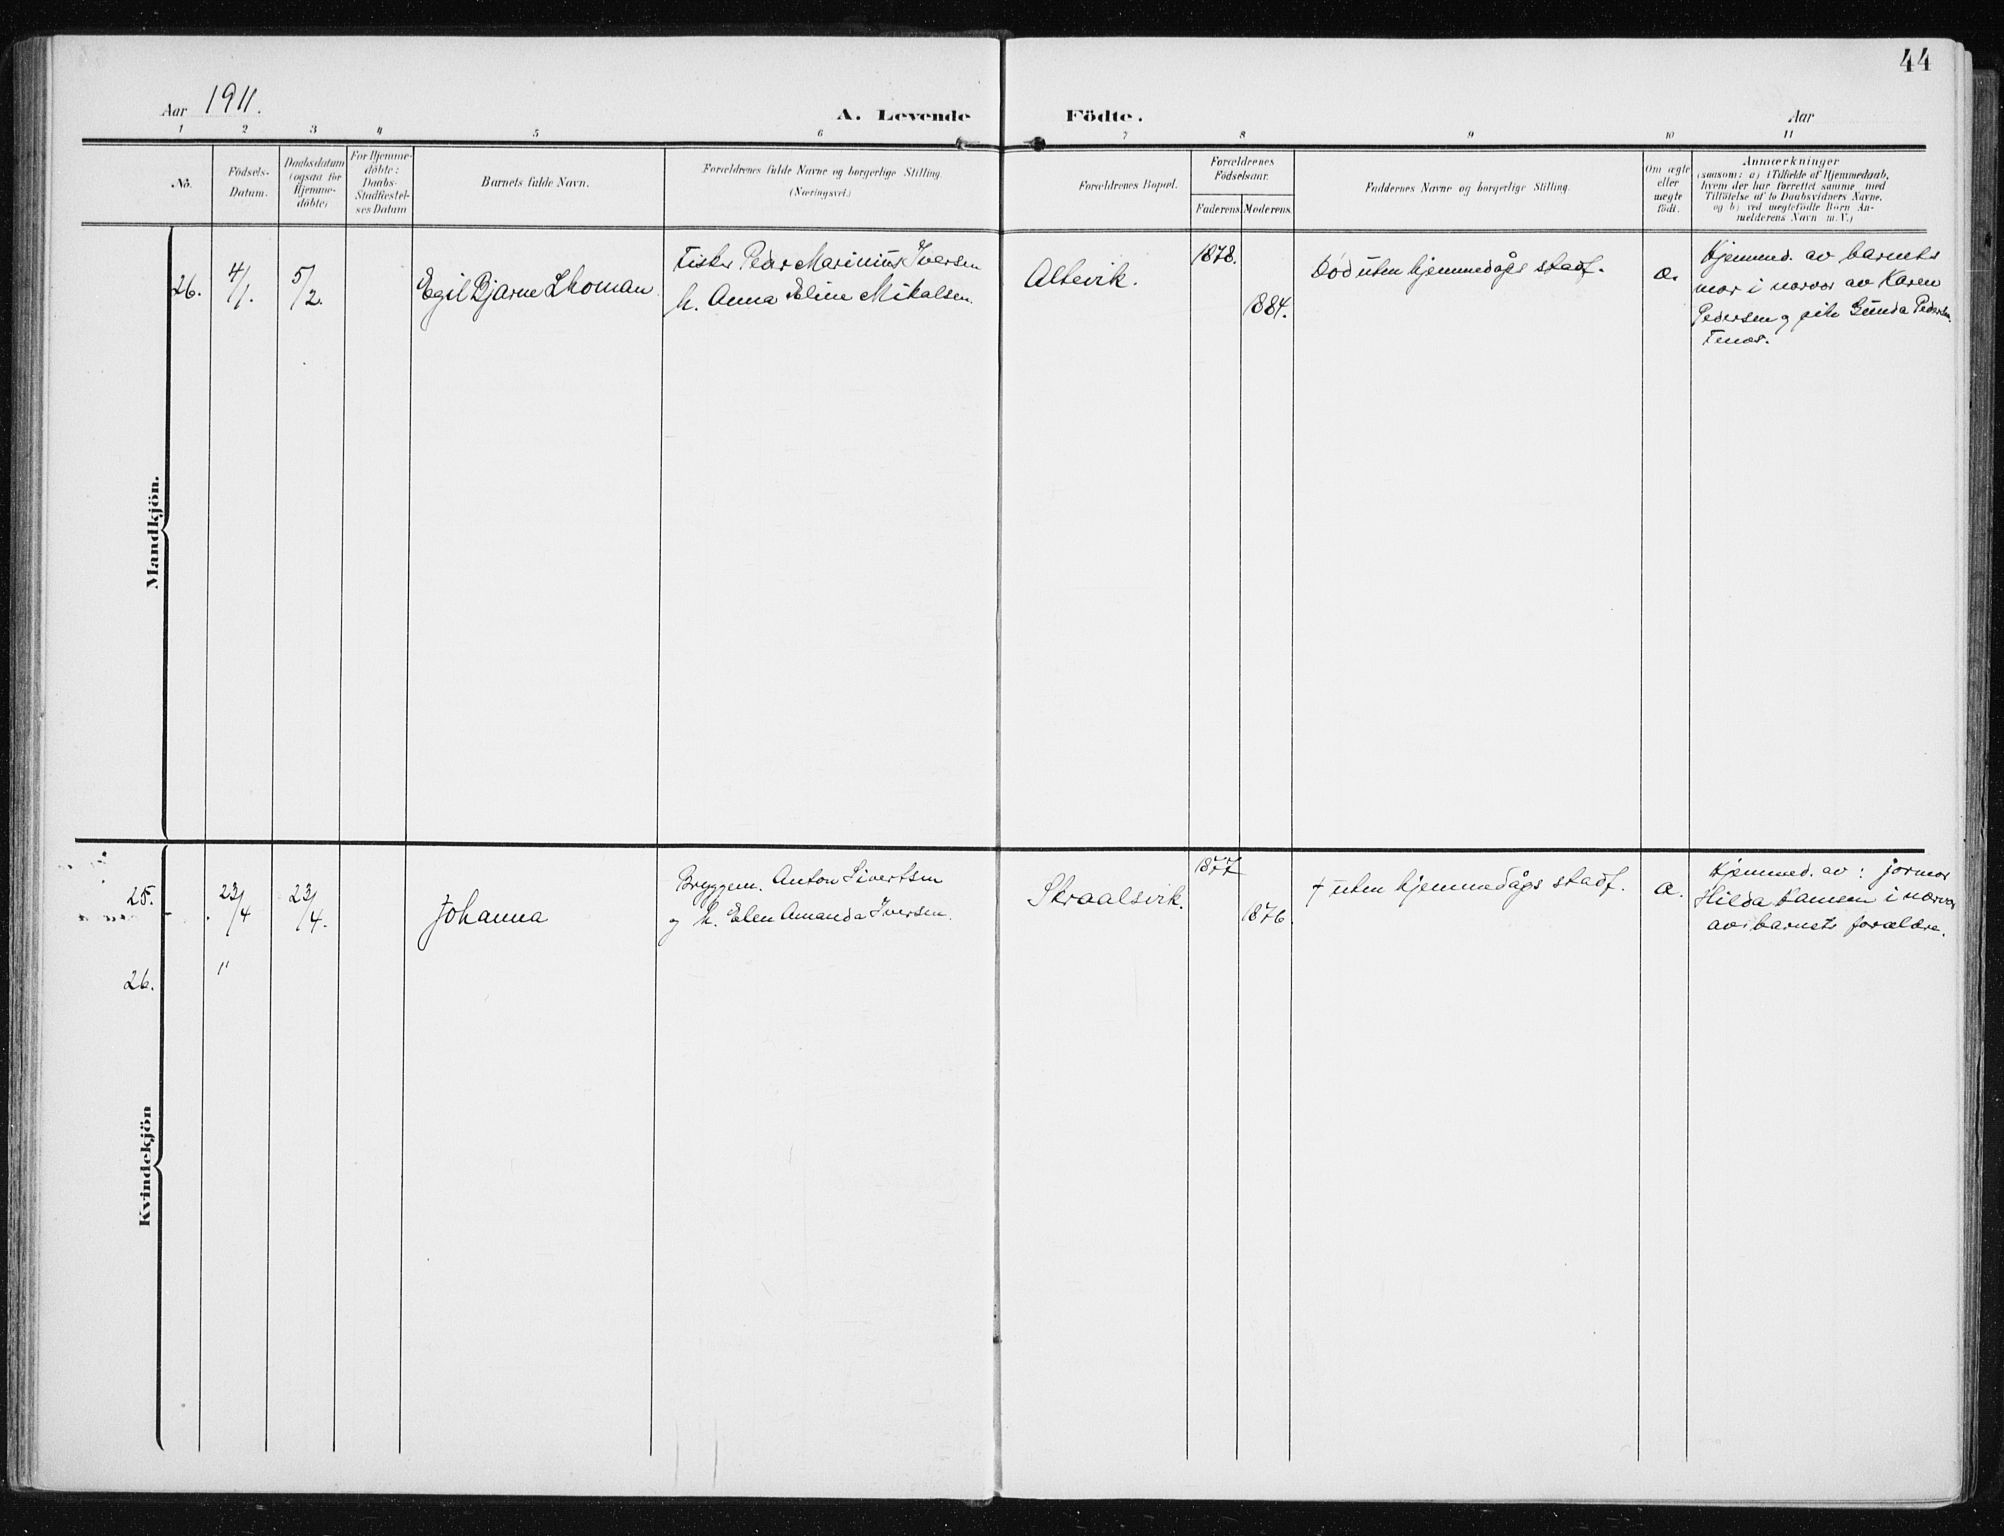 44
Aar 1911.
A. Levende Födte.
Aar
1 2 3 4 5 6 7 8 9 10 11
No.
Födsels-
Datum.
Daabsdatum
(ogsaa for
Hjemme-
döbte)
For Hjemme-
döbte:
Daabs-
Stadfæstel-
ses Datum
Barnets fulde Navn.
Forældrenes fulde Navne og borgerlige Stilling.
(Næringsvei.)
Forældrenes Bopæl.
Forældrenes
Födselsaar.
Faderens. Moderens.
Faddernes Navne og borgerlige Stilling.
Om ægte
eller
uægte
födt.
Anmærkninger
(saasom: a) i Tilfælde af Hjemmedaab,
hvem der har forrettet samme, med
Tilföielse af to Daabsvidners Navne,
og b) ved uægtefödte Börn An-
melderens Navn m. V.)
Mandkjön.
26.
4/1.
5/2.
Egil Bjarne Thoman
Fisker Peder Marinius Iversen
h. Anna Eline Mikalsen.
Altevik.
1878.
1884.
Död uten hjemmedåps stadf.
æ.
Hjemmed. av barnets
mor i nærvær av Karen
Pedersen og pike Gunda Pedersen
Kvindekjön
25.
23/4
23/4.
Johanna
Bryggem. Anton Sivertsen
og h. Elen Amanda Iversen.
Skraalsvik.
1877
1876.
† uten hjemmedåps stadf.
æ.
Hjemmed. av: jormor
Hilda Hansen i nærvær
av barnets forældre.
26.
"